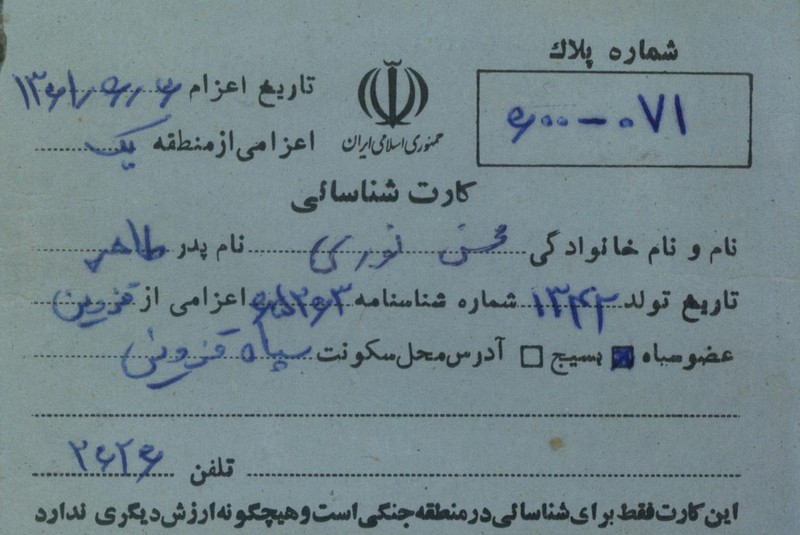 شماره پلاك
۶۰۰-۰۷۱
تاریخ اعزام ۱۳۶۱/۶/۶
جمهوری اسلامی ایران
اعزامی از منطقه یک
کارت شناسائی
نام و نام خانوادگی محسن نوری نام پدر طاهر
تاریخ تولد ۱۳۴۲ شماره شناسنامه اعزامی از قزوین
عضو سپاه بسیج آدرس محل سکونت سپاه قزوین
تلفن ۲۶۲۶
این کارت فقط برای شناسائی در منطقه جنگی است و هیچگونه ارزش دیگری ندارد